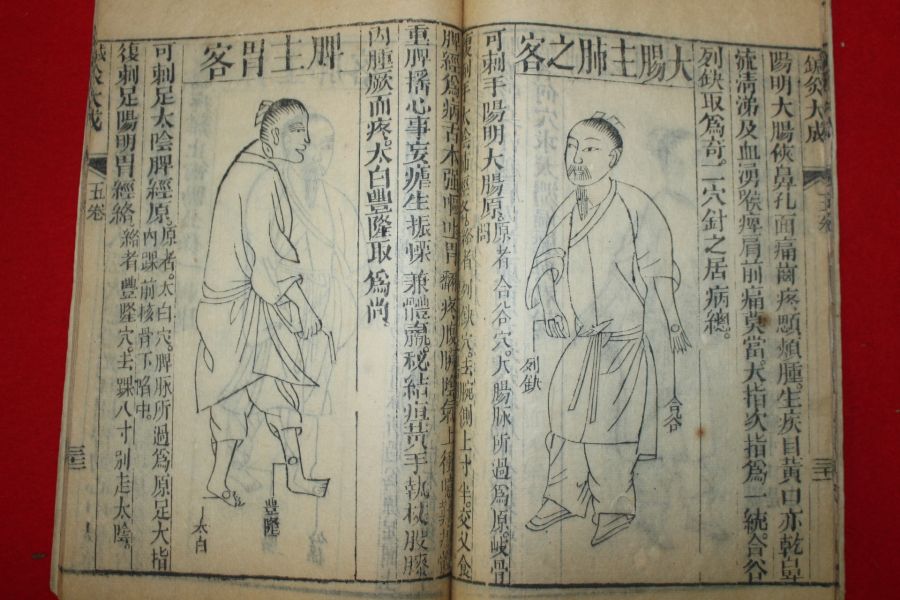 鍼灸大成
五卷
陽明大腸俠鼻孔面痛齒疼腮頰腫生疾目黃口亦乾鼻
流清涕及血湧喉痺肩前痛莫當大指次指為一統合谷
列缺取為奇二穴針之居病總
大腸主肺之客
列缺
合谷
可刺手陽明大腸原原者合谷穴大腸脉所過為原岐骨
間
列缺穴去腕側上寸半交叉食
脾經為病舌本强嘔吐胃翻疼腹
重脾搖心事妄瘧生振慄兼體羸秘結疸黃手執杖股膝
內腫厥而疼太白豐隆取為尚
脾主胃客
豐隆
太白
可刺足太陰脾經原原者太白穴脾脉所過為原足大指
內踝前核骨下陷中
復刺足陽明胃經絡絡者豐隆穴去踝八寸別走太陰
鍼灸大成
五卷